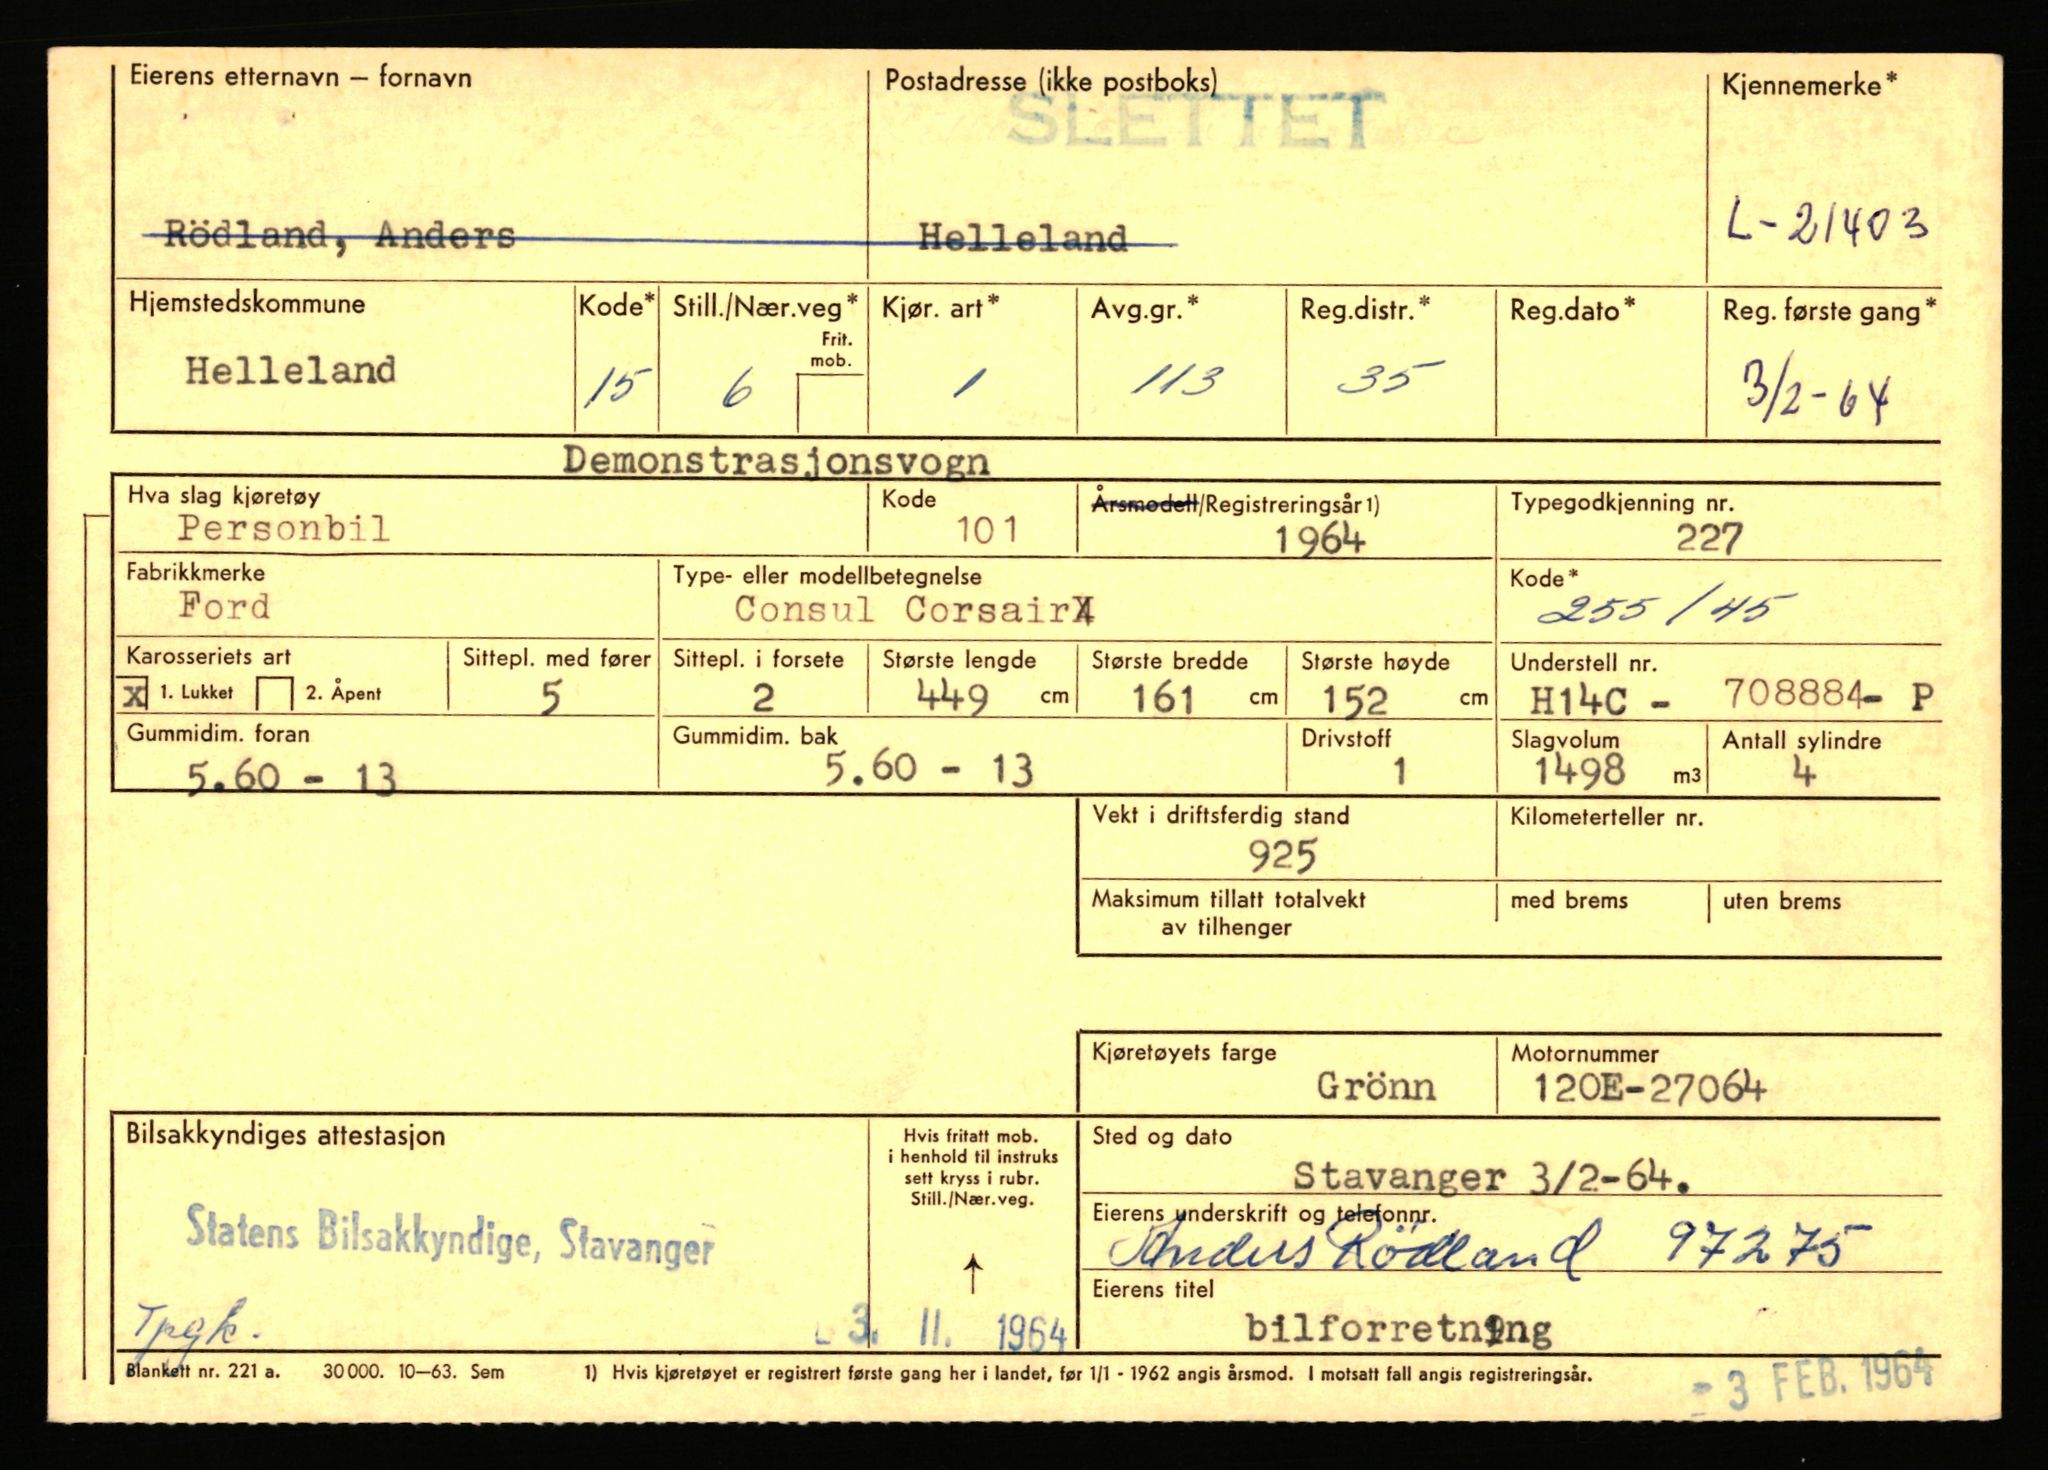 Eierens etternavn — fornavn
Postadresse (ikke postboks)
Kjennemerke*
SLETTET
Rödland, Anders
Helleland
L-21403
Hjemstedskommune
Kode*
Still./Nær.veg*
Frit. mob.
Kjør. art*
Avg.gr.*
Reg.distr.*
Reg.dato*
Reg. første gang*
Helleland
15
6
1
113
35
3/2-64
Demonstrasjonsvogn
Hva slag kjøretøy
Kode
Årsmodell/Registreringsår 1)
Typegodkjenning nr.
Personbil
101
1964
227
Fabrikkmerke
Type- eller modellbetegnelse
Kode*
Ford
Consul Corsair
255/45
Karosseriets art
Sittepl. med fører
Sittepl. i forsete
Største lengde
Største bredde
Største høyde
Understell nr.
X 1. Lukket
2. Åpent
5
2
449 cm
161 cm
152 cm
H14C - 708884- P
Gummidim. foran
Gummidim. bak
Drivstoff
Slagvolum
Antall sylindre
5.60 - 13
5.60 - 13
1
1498 m3
4
Vekt i driftsferdig stand
Kilometerteller nr.
925
Maksimum tillatt totalvekt
av tilhenger
med brems
uten brems
Kjøretøyets farge
Motornummer
Grönn
120E-27064
Bilsakkyndiges attestasjon
Hvis fritatt mob.
i henhold til instruks
sett kryss i rubr.
Still./Nær.veg.
↑
Sted og dato
Stavanger 3/2-64.
Statens Bilsakkyndige, Stavanger
Eierens underskrift og telefonnr.
Anders Rödland 97275
Eierens titel
bilforretning
Tpgk.
3. II. 1964
Blankett nr. 221 a. 30 000. 10—63. Sem
1) Hvis kjøretøyet er registrert første gang her i landet, før 1/1 - 1962 angis årsmod. I motsatt fall angis registreringsår.
- 3 FEB. 1964